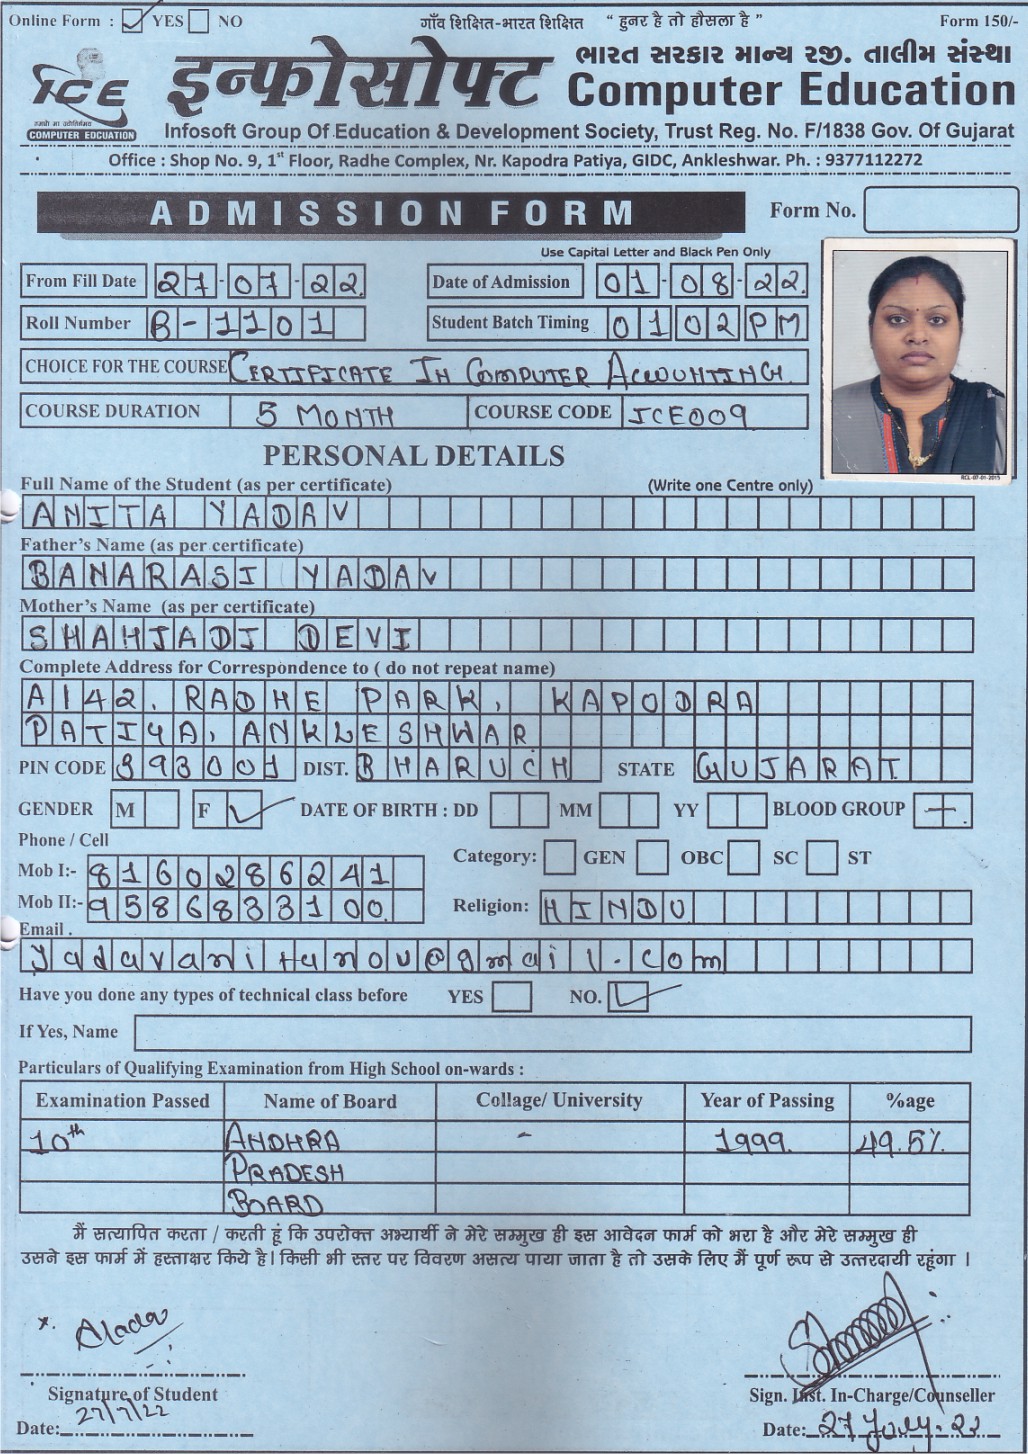 Online Form : YES NO गाँव शिक्षित-भारत शिक्षित “ हुनर है तो हौसला है ” Form 150/-
ICE
COMPUTER EDCUATION
इन्फोसोफ्ट ભારત સરકાર માન્ય રજી. તાલીમ સંસ્થા
Computer Education
Infosoft Group Of Education & Development Society, Trust Reg. No. F/1838 Gov. Of Gujarat
Office : Shop No. 9, 1st Floor, Radhe Complex, Nr. Kapodra Patiya, GIDC, Ankleshwar. Ph. : 9377112272
ADMISSION FORM Form No.
Use Capital Letter and Black Pen Only
From Fill Date 27-07-22 Date of Admission 01-08-22
Roll Number B-1101 Student Batch Timing 0102PM
CHOICE FOR THE COURSE CERTIFICATE IN COMPUTER ACCOUNTING
COURSE DURATION 5 MONTH COURSE CODE ICE009
RCL-07-01-2015
PERSONAL DETAILS
Full Name of the Student (as per certificate) (Write one Centre only)
ANITA YADAV
Father's Name (as per certificate)
BANARASI YADAV
Mother's Name (as per certificate)
SHAHJADI DEVI
Complete Address for Correspondence to ( do not repeat name)
A142, RADHE PARK, KAPODRA
PATIYA, ANKLESHWAR
PIN CODE 393001 DIST. BHARUCH STATE GUJARAT
GENDER M F DATE OF BIRTH : DD MM YY BLOOD GROUP
Phone / Cell
Mob I:- 8160286241 Category: GEN OBC SC ST
Mob II:- 9586833100 Religion: HINDU
Email .
yadavanitanou@gmail.com
Have you done any types of technical class before YES NO.
If Yes, Name
Particulars of Qualifying Examination from High School on-wards :
Examination Passed Name of Board Collage/ University Year of Passing %age
10th ANDHRA - 1999. 49.5%
PRADESH
BOARD
मैं सत्यापित करता / करती हूं कि उपरोक्त अभ्यार्थी ने मेरे सम्मुख ही इस आवेदन फार्म को भरा है और मेरे सम्मुख ही
उसने इस फार्म में हस्ताक्षर किये है। किसी भी स्तर पर विवरण असत्य पाया जाता है तो उसके लिए मैं पूर्ण रूप से उत्तरदायी रहूंगा ।
Signature of Student Sign. Inst. In-Charge/Counseller
Date: 27/7/22 Date: 27 July. 22